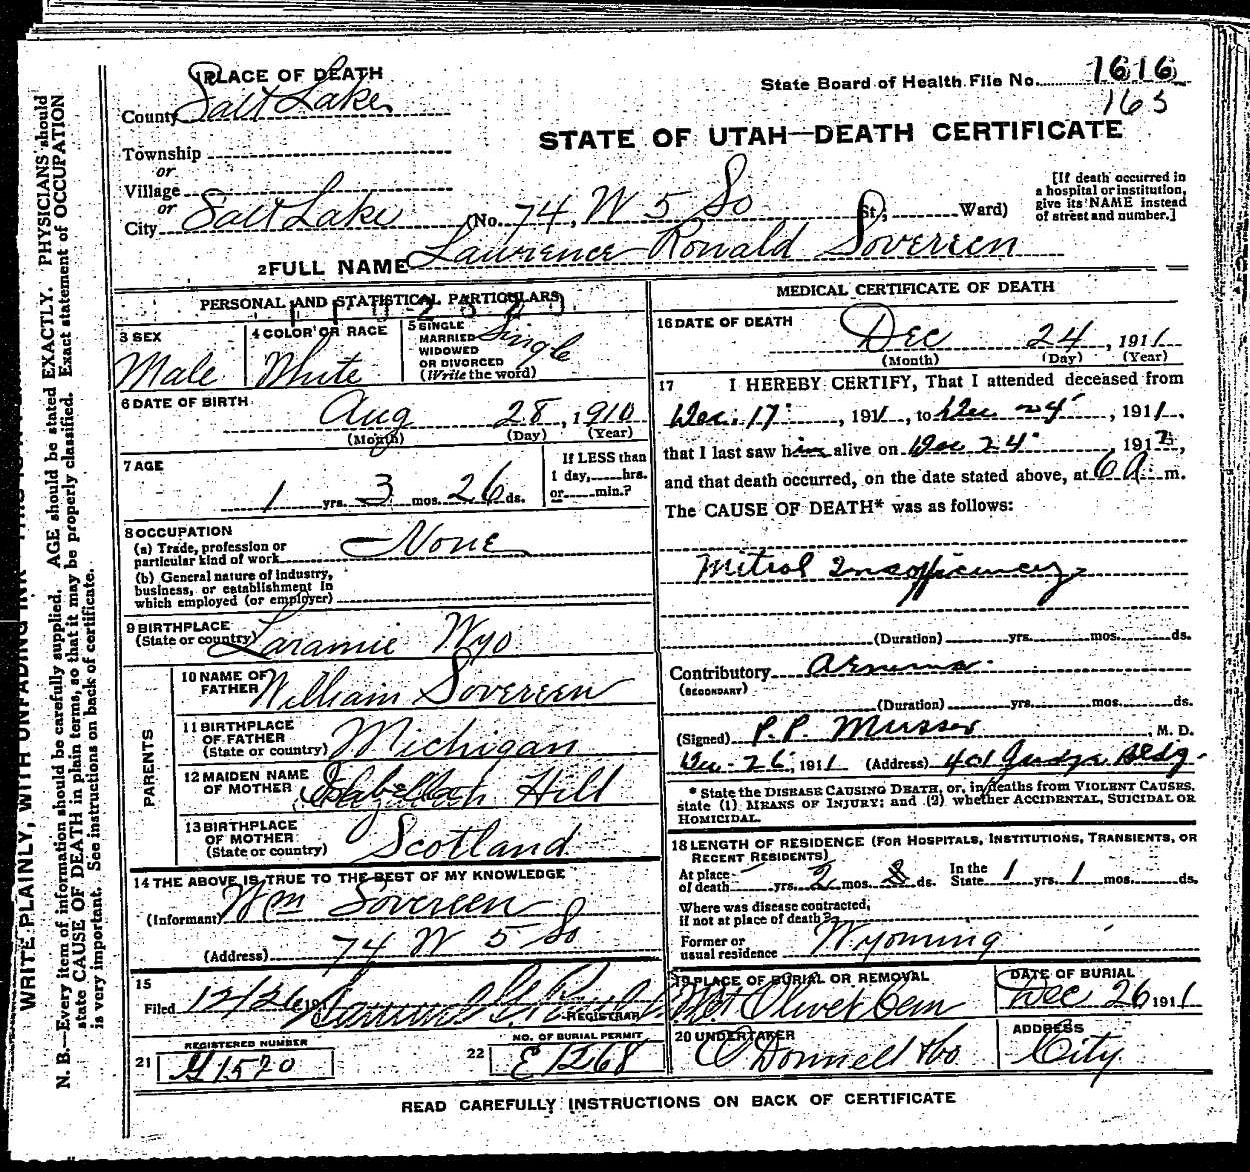 1 PLACE OF DEATH
State Board of Health File No. 1616
County Salt Lake
163
STATE OF UTAH—DEATH CERTIFICATE
Township
or
Village
or
City Salt Lake (No. 74, W 5 So St.; Ward)
[If death occurred in a hospital or institution, give its NAME instead of street and number.]
2 FULL NAME Lawrence Ronald Sovereen
PERSONAL AND STATISTICAL PARTICULARS
3 SEX
Male
4 COLOR OR RACE
White
5 SINGLE MARRIED WIDOWED OR DIVORCED (Write the word)
Single
6 DATE OF BIRTH
Aug 28, 1910
(Month) (Day) (Year)
7 AGE
1 yrs. 3 mos. 26 ds.
If LESS than 1 day, hrs. or min.?
8 OCCUPATION
(a) Trade, profession or particular kind of work None
(b) General nature of industry, business, or establishment in which employed (or employer)
9 BIRTHPLACE
(State or country) Laramie Wyo
PARENTS
10 NAME OF FATHER William Sovereen
11 BIRTHPLACE OF FATHER (State or country) Michigan
12 MAIDEN NAME OF MOTHER Isabella Hill
13 BIRTHPLACE OF MOTHER (State or country) Scotland
14 THE ABOVE IS TRUE TO THE BEST OF MY KNOWLEDGE
(Informant) Wm Sovereen
(Address) 74 W 5 So
15
Filed 12/26 191
REGISTRAR
21 REGISTERED NUMBER
1570
22 NO. OF BURIAL PERMIT
E 1268
MEDICAL CERTIFICATE OF DEATH
16 DATE OF DEATH
Dec 24, 1911
(Month) (Day) (Year)
17 I HEREBY CERTIFY, That I attended deceased from
Dec. 17, 1911, to Dec 24, 1911,
that I last saw him alive on Dec 24 191
and that death occurred, on the date stated above, at 6 A. m.
The CAUSE OF DEATH* was as follows:
Mitral Insufficiency
(Duration) yrs. mos. ds.
Contributory
(SECONDARY)
(Duration) yrs. mos. ds.
(Signed) P. P. Musser, M. D.
Dec- 26, 1911 (Address) 401 Judge Bldg.
* State the DISEASE CAUSING DEATH, or, in deaths from VIOLENT CAUSES, state (1) MEANS OF INJURY; and (2) whether ACCIDENTAL, SUICIDAL OR HOMICIDAL.
18 LENGTH OF RESIDENCE (FOR HOSPITALS, INSTITUTIONS, TRANSIENTS, OR RECENT RESIDENTS)
At place of death yrs. 2 mos. ds. In the State 1 yrs. 1 mos. ds.
Where was disease contracted, if not at place of death?
Former or usual residence Wyoming
19 PLACE OF BURIAL OR REMOVAL
Mt Olivet Cem
DATE OF BURIAL
Dec 26 1911
20 UNDERTAKER
O'Donnell & Co
ADDRESS
City
READ CAREFULLY INSTRUCTIONS ON BACK OF CERTIFICATE
WRITE PLAINLY, WITH UNFADING INK
N. B.—Every item of information should be carefully supplied. AGE should be stated EXACTLY. PHYSICIANS should
state CAUSE OF DEATH in plain terms, so that it may be properly classified. Exact statement of OCCUPATION
is very important. See instructions on back of certificate.